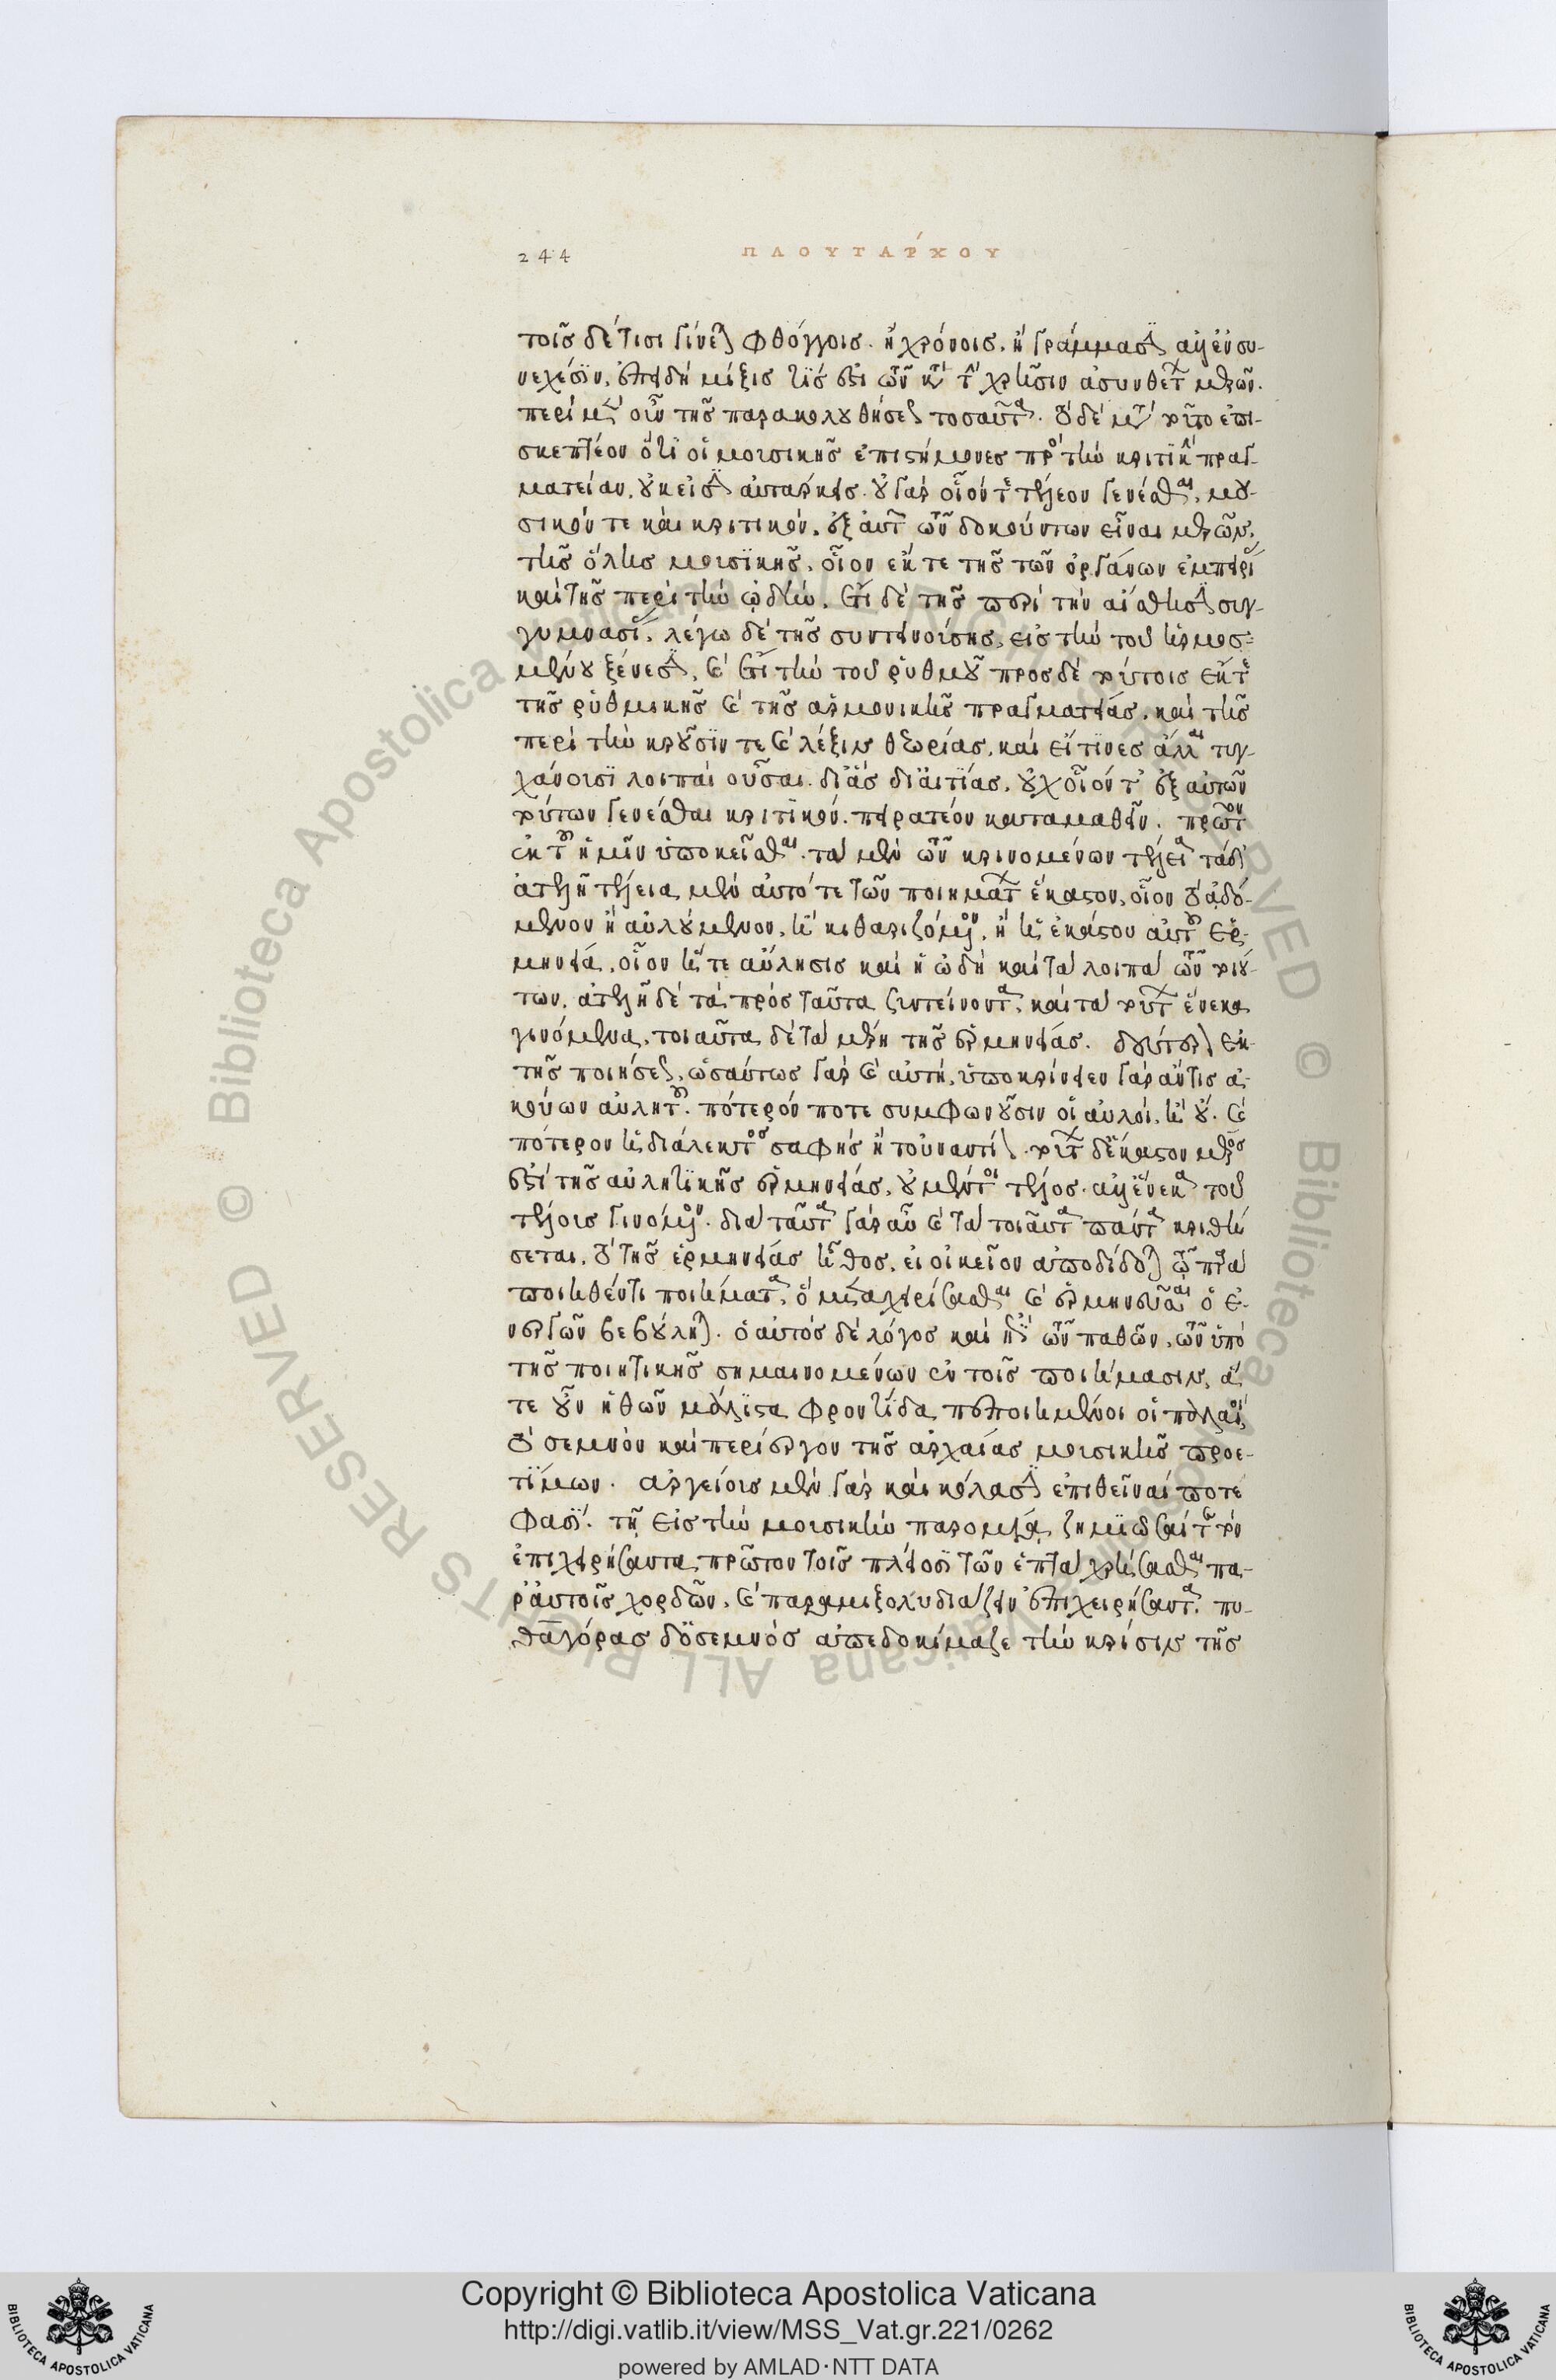 244
ΠΛΟΥΤΑΡΧΟΥ
τοῖς δέ τισι γίνεται φθόγγοις. ἢ χρόνοις. ἢ γράμμασιν αἰεὶ ἐν συ-
νεχέσιν. ἐπειδὴ μίξις τίς ἐστι τῶν κατὰ τὴν χρῆσιν ἀσυνθέτων μερῶν.
περὶ μὲν οὖν τῆς παρακολουθήσεως τοσαῦτα. τὸ δὲ μετὰ τοῦτο ἐπι-
σκεπτέον ὅτι οἱ μουσικῆς ἐπιστήμονες πρὸς τὴν κριτικὴν πραγ-
ματείαν, οὔκ εἰσιν αὐτάρκεις. οὐ γὰρ οἷόν τε τέλεον γενέσθαι, μου-
σικόν τε καὶ κριτικόν, ἐξ αὐτῶν τῶν δοκούντων εἶναι μερῶν,
τῆς ὅλης μουσικῆς. οἷον ἔκ τε τῆς τῶν ὀργάνων ἐμπειρίας
καὶ τῆς περὶ τὴν ᾠδήν. ἔτι δὲ τῆς περὶ τὴν αἴσθησιν συγ-
γυμνασίας. λέγω δὲ τῆς συντεινούσης, εἰς τὴν τοῦ ἡρμοσ-
μένου ξύνεσιν, καὶ ἔτι τὴν τοῦ ῥυθμοῦ πρὸς δὲ τούτοις ἔκ τε
τῆς ῥυθμικῆς καὶ τῆς ἁρμονικῆς πραγματείας. καὶ τῆς
περὶ τὴν κροῦσίν τε καὶ λέξιν θεωρίας. καὶ εἴ τινες ἄλλαι τυγ-
χάνουσι λοιπαὶ οὖσαι. δι' ἃς δι' αἰτίας, οὐχ οἷόν τ' ἐξ αὐτῶν
τούτων γενέσθαι κριτικόν. πειρατέον καταμαθεῖν. πρῶτον
ἐκ τοῦ ἡμῖν ὑποκεῖσθαι. τὰ μὲν τῶν κρινομένων τέλεια τὰ δ'
ἀτελῆ τέλεια μὲν αὐτό τε τῶν ποιημάτων ἕκαστον, οἷον τὸ ᾀδό-
μενον ἢ αὐλούμενον, ἢ κιθαριζόμενον, ἢ ἡ ἑκάστου αὐτοῦ ἑρ-
μηνεία, οἷον ἥ τε αὔλησις καὶ ἡ ᾠδὴ καὶ τὰ λοιπὰ τῶν τοιού-
των. ἀτελῆ δὲ τὰ πρὸς ταῦτα συντείνοντα. καὶ τὰ τούτων ἕνεκα
γινόμενα. τοιαῦτα δὲ τὰ μέρη τῆς ἑρμηνείας. δεύτερον ἐκ
τῆς ποιήσεως. ὡσαύτως γὰρ καὶ αὐτή. ὑποκρίνειεν γὰρ ἄν τις ἀ-
κούων αὐλητοῦ. πότερόν ποτε συμφωνοῦσιν οἱ αὐλοί. ἢ οὔ. καὶ
πότερον ἡ διάλεκτος σαφὴς ἢ τοὐναντίον. τούτων δ' ἕκαστον μέρος
ἐστὶ τῆς αὐλητικῆς ἑρμηνείας. οὐ μέντοι τέλος. αἰεὶ ἕνεκα τοῦ
τέλους γινόμενον. διὰ ταῦτα γὰρ αὖ καὶ τὰ τοιαῦτα πάντα κριθή
σεται. τὸ τῆς ἑρμηνείας ἦθος. εἰ οἰκεῖον ἀποδίδοται τῷ παρα
ποιηθέντι ποιήματι, ὃ μεταχειρίσασθαι καὶ ἑρμηνεῦσαι ὁ ἐ-
νεργῶν βεβούληται. ὁ αὐτὸς δὲ λόγος καὶ ἐπὶ τῶν παθῶν. τῶν ὑπὸ
τῆς ποιητικῆς σημαινομένων ἐν τοῖς ποιήμασιν. ἅ
τε οὖν ἠθῶν μάλιστα φροντίδα πεποιημένοι οἱ παλαιοί,
τὸ σεμνὸν καὶ περίεργον τῆς ἀρχαίας μουσικῆς προε-
τίμων. ἀργείους μὲν γὰρ καὶ κόλασιν ἐπιθεῖναί ποτέ
φασι. τῇ εἰς τὴν μουσικὴν παρομίᾳ. ζημιῶσαί τε τὸν
ἐπιχειρήσαντα πρῶτον τοῖς πλείοσι τῶν ἑπτὰ χρήσασθαι πα-
ρ' αὐτοῖς χορδῶν. καὶ παραμιξολυδιάζειν ἐπιχειρήσαντα. πυ-
θαγόρας δ' ὁ σεμνὸς ἀπεδοκίμαζε τὴν κρίσιν τῆς
Copyright © Biblioteca Apostolica Vaticana
http://digi.vatlib.it/view/MSS_Vat.gr.221/0262
powered by AMLAD·NTT DATA
BIBLIOTECA APOSTOLICA VATICANA
BIBLIOTECA APOSTOLICA VATICANA
© Biblioteca Apostolica Vaticana ALL RIGHTS RESERVED © Biblioteca Apostolica Vaticana ALL RIGHTS RESERVED